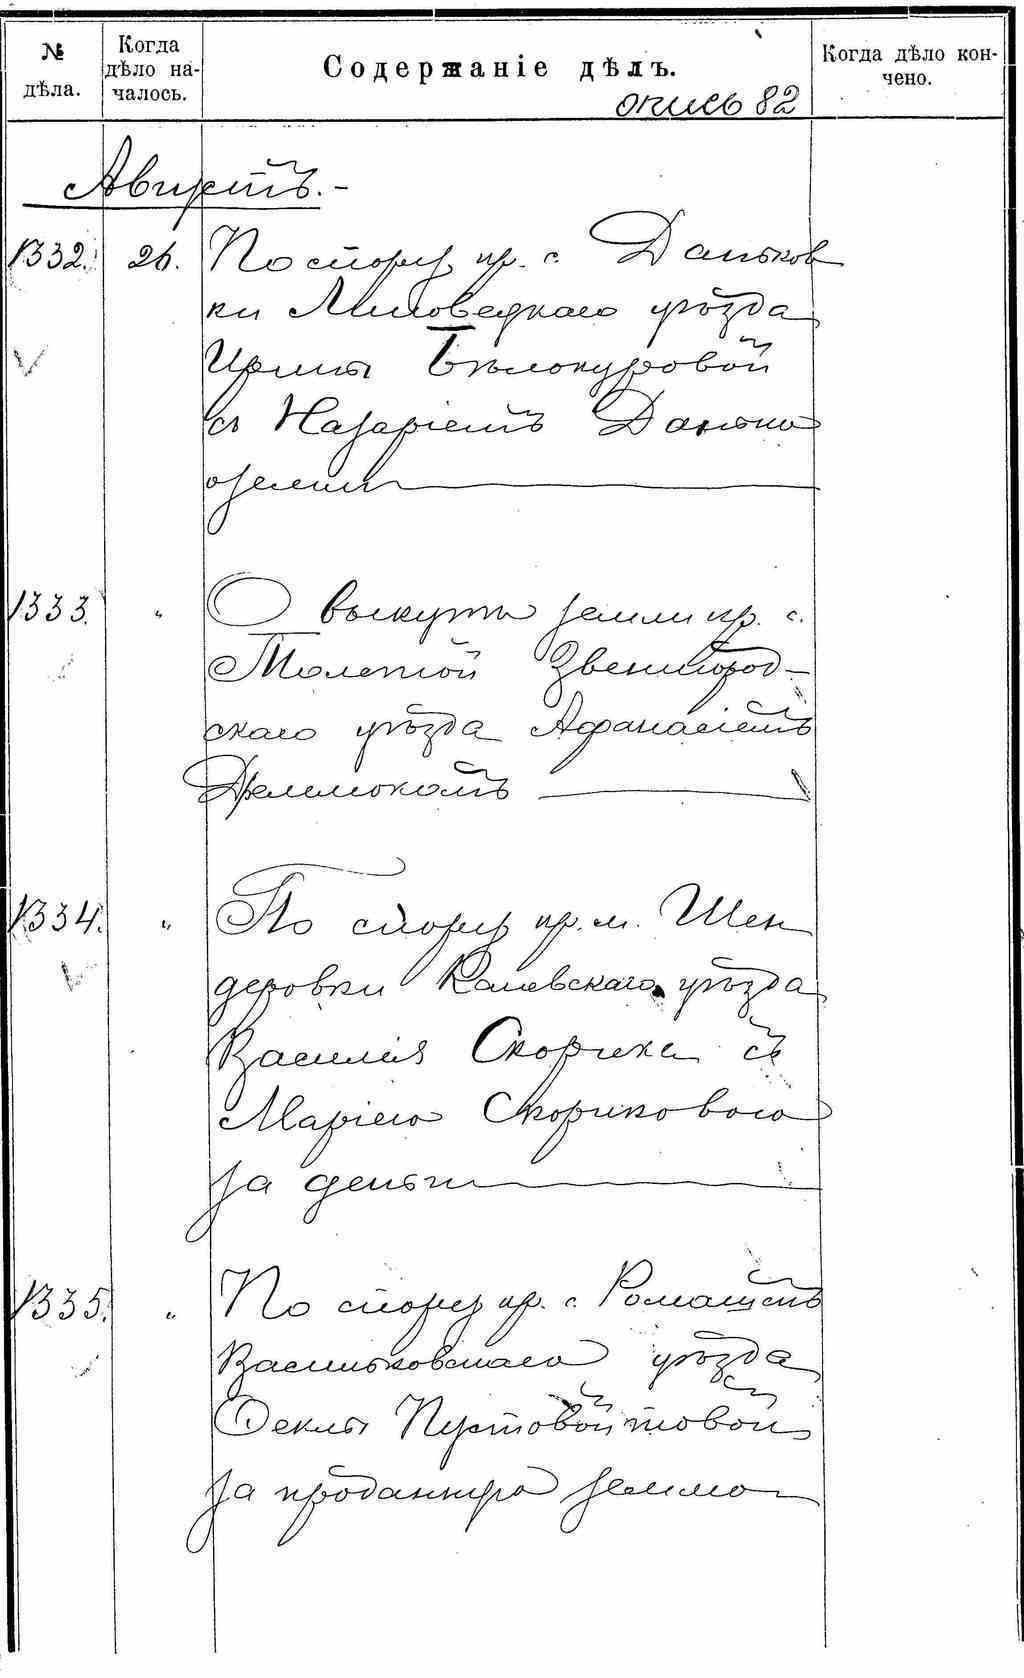 № дѣла.
Когда дѣло началось.
Содержаніе дѣлъ.
Когда дѣло кончено.
опись 82
Августъ.-
1332. 26. По спору кр. с. Даньков
ки Липовецкаго уѣзда
Ирины Бѣлокуровой
съ Назаріемъ Данько
о земли
1333. " О выкупѣ земли кр. с.
Толстой Звенигород-
скаго уѣзда Афанасіемъ
1334. " По спору кр. м. Шен
деровки Каневскаго уѣзда
Василія Скорика съ
Маріею Скориковою
за деньги
1335. " По спору кр. с. Ромашекъ
Васильковскаго уѣзда
Феклы Пустовойтовой
за проданную землю